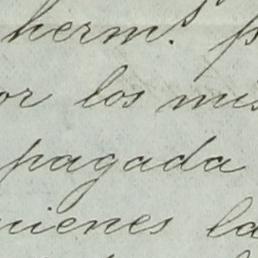 herm.s p
or los mis
pagada
uienes la